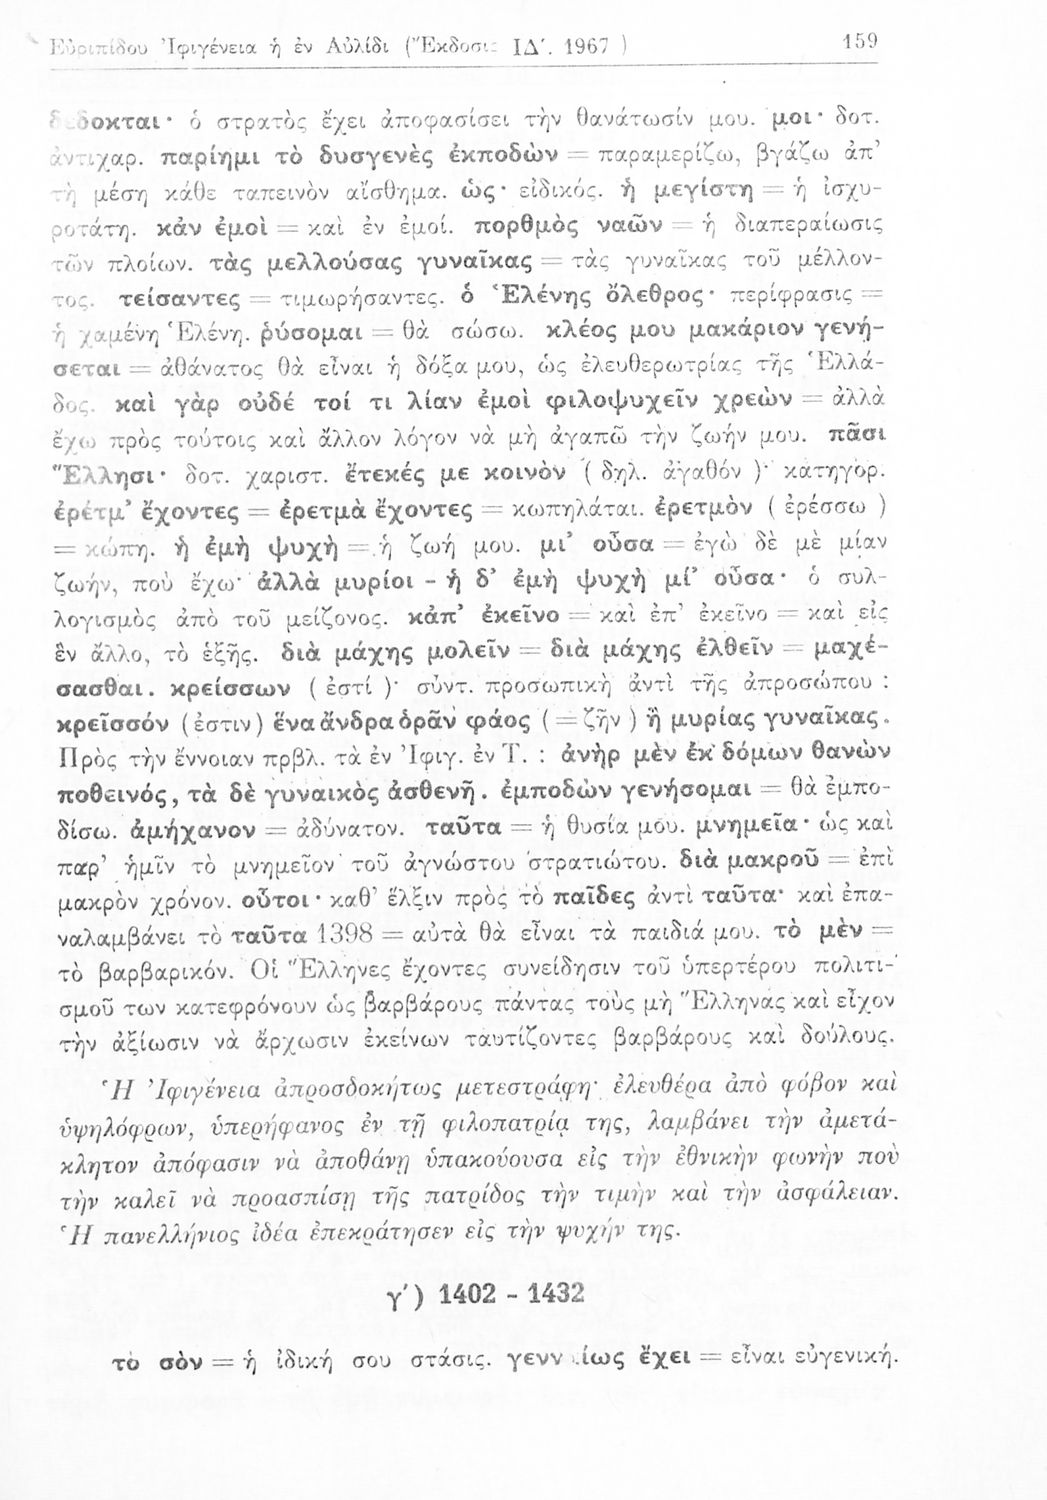 Εὐριπίδου Ἰφιγένεια ἡ ἐν Αὐλίδι (Ἔκδοσις ΙΔ΄. 1967 ) 159
δέδοκται· ὁ στρατὸς ἔχει ἀποφασίσει τὴν θανάτωσίν μου. μοι· δοτ.
ἀντιχαρ. παρίημι τὸ δυσγενὲς ἐκποδὼν = παραμερίζω, βγάζω ἀπ’
τὴ μέση κάθε ταπεινὸν αἴσθημα. ὡς· εἰδικός. ἡ μεγίστη = ἡ ἰσχυ-
ροτάτη. κἀν ἐμοὶ = καὶ ἐν ἐμοί. πορθμὸς ναῶν = ἡ διαπεραίωσις
τῶν πλοίων. τὰς μελλούσας γυναῖκας = τὰς γυναῖκας τοῦ μέλλον-
τος. τείσαντες = τιμωρήσαντες. ὁ Ἑλένης ὄλεθρος· περίφρασις =
ἡ χαμένη Ἑλένη. ῥύσομαι = θὰ σώσω. κλέος μου μακάριον γενή-
σεται = ἀθάνατος θὰ εἶναι ἡ δόξα μου, ὡς ἐλευθερωτρίας τῆς Ἑλλά-
δος. καὶ γὰρ οὐδέ τοί τι λίαν ἐμοὶ φιλοψυχεῖν χρεὼν = ἀλλὰ
ἔχω πρὸς τούτοις καὶ ἄλλον λόγον νὰ μὴ ἀγαπῶ τὴν ζωήν μου. πᾶσι
Ἕλλησι· δοτ. χαριστ. ἔτεκές με κοινὸν ( δηλ. ἀγαθόν )· κατηγορ.
ἐρέτμ’ ἔχοντες = ἐρετμὰ ἔχοντες = κωπηλάται. ἐρετμὸν ( ἐρέσσω )
= κώπη. ἡ ἐμὴ ψυχὴ = ἡ ζωή μου. μι’ οὖσα = ἐγὼ δὲ μὲ μίαν
ζωήν, ποὺ ἔχω· ἀλλὰ μυρίοι - ἡ δ’ ἐμὴ ψυχὴ μί’ οὖσα· ὁ συλ-
λογισμὸς ἀπὸ τοῦ μείζονος. κἀπ’ ἐκεῖνο = καὶ ἐπ’ ἐκεῖνο = καὶ εἰς
ἓν ἄλλο, τὸ ἑξῆς. διὰ μάχης μολεῖν = διὰ μάχης ἐλθεῖν = μαχέ-
σασθαι. κρείσσων ( ἐστί )· σύντ. προσωπικὴ ἀντὶ τῆς ἀπροσώπου :
κρεῖσσόν (ἐστιν) ἕνα ἄνδρα ὁρᾶν φάος ( = ζῆν ) ἢ μυρίας γυναῖκας.
Πρὸς τὴν ἔννοιαν πρβλ. τὰ ἐν Ἰφιγ. ἐν Τ. : ἀνὴρ μὲν ἐκ δόμων θανὼν
ποθεινός, τὰ δὲ γυναικὸς ἀσθενῆ. ἐμποδὼν γενήσομαι = θὰ ἐμπο-
δίσω. ἀμήχανον = ἀδύνατον. ταῦτα = ἡ θυσία μου. μνημεῖα· ὡς καὶ
παρ’ ἡμῖν τὸ μνημεῖον τοῦ ἀγνώστου στρατιώτου. διὰ μακροῦ = ἐπὶ
μακρὸν χρόνον. οὗτοι· καθ’ ἕλξιν πρὸς τὸ παῖδες ἀντὶ ταῦτα· καὶ ἐπα-
ναλαμβάνει τὸ ταῦτα 1398 = αὐτὰ θὰ εἶναι τὰ παιδιά μου. τὸ μὲν =
τὸ βαρβαρικόν. Οἱ Ἕλληνες ἔχοντες συνείδησιν τοῦ ὑπερτέρου πολιτι-
σμοῦ των κατεφρόνουν ὡς βαρβάρους πάντας τοὺς μὴ Ἕλληνας καὶ εἶχον
τὴν ἀξίωσιν νὰ ἄρχωσιν ἐκείνων ταυτίζοντες βαρβάρους καὶ δούλους.
Ἡ Ἰφιγένεια ἀπροσδοκήτως μετεστράφη· ἐλευθέρα ἀπὸ φόβον καὶ
ὑψηλόφρων, ὑπερήφανος ἐν τῇ φιλοπατρίᾳ της, λαμβάνει τὴν ἀμετά-
κλητον ἀπόφασιν νὰ ἀποθάνῃ ὑπακούουσα εἰς τὴν ἐθνικὴν φωνὴν ποὺ
τὴν καλεῖ νὰ προασπίσῃ τῆς πατρίδος τὴν τιμὴν καὶ τὴν ἀσφάλειαν.
Ἡ πανελλήνιος ἰδέα ἐπεκράτησεν εἰς τὴν ψυχήν της.
γ΄) 1402 - 1432
τὸ σὸν = ἡ ἰδική σου στάσις. γενναίως ἔχει = εἶναι εὐγενική.